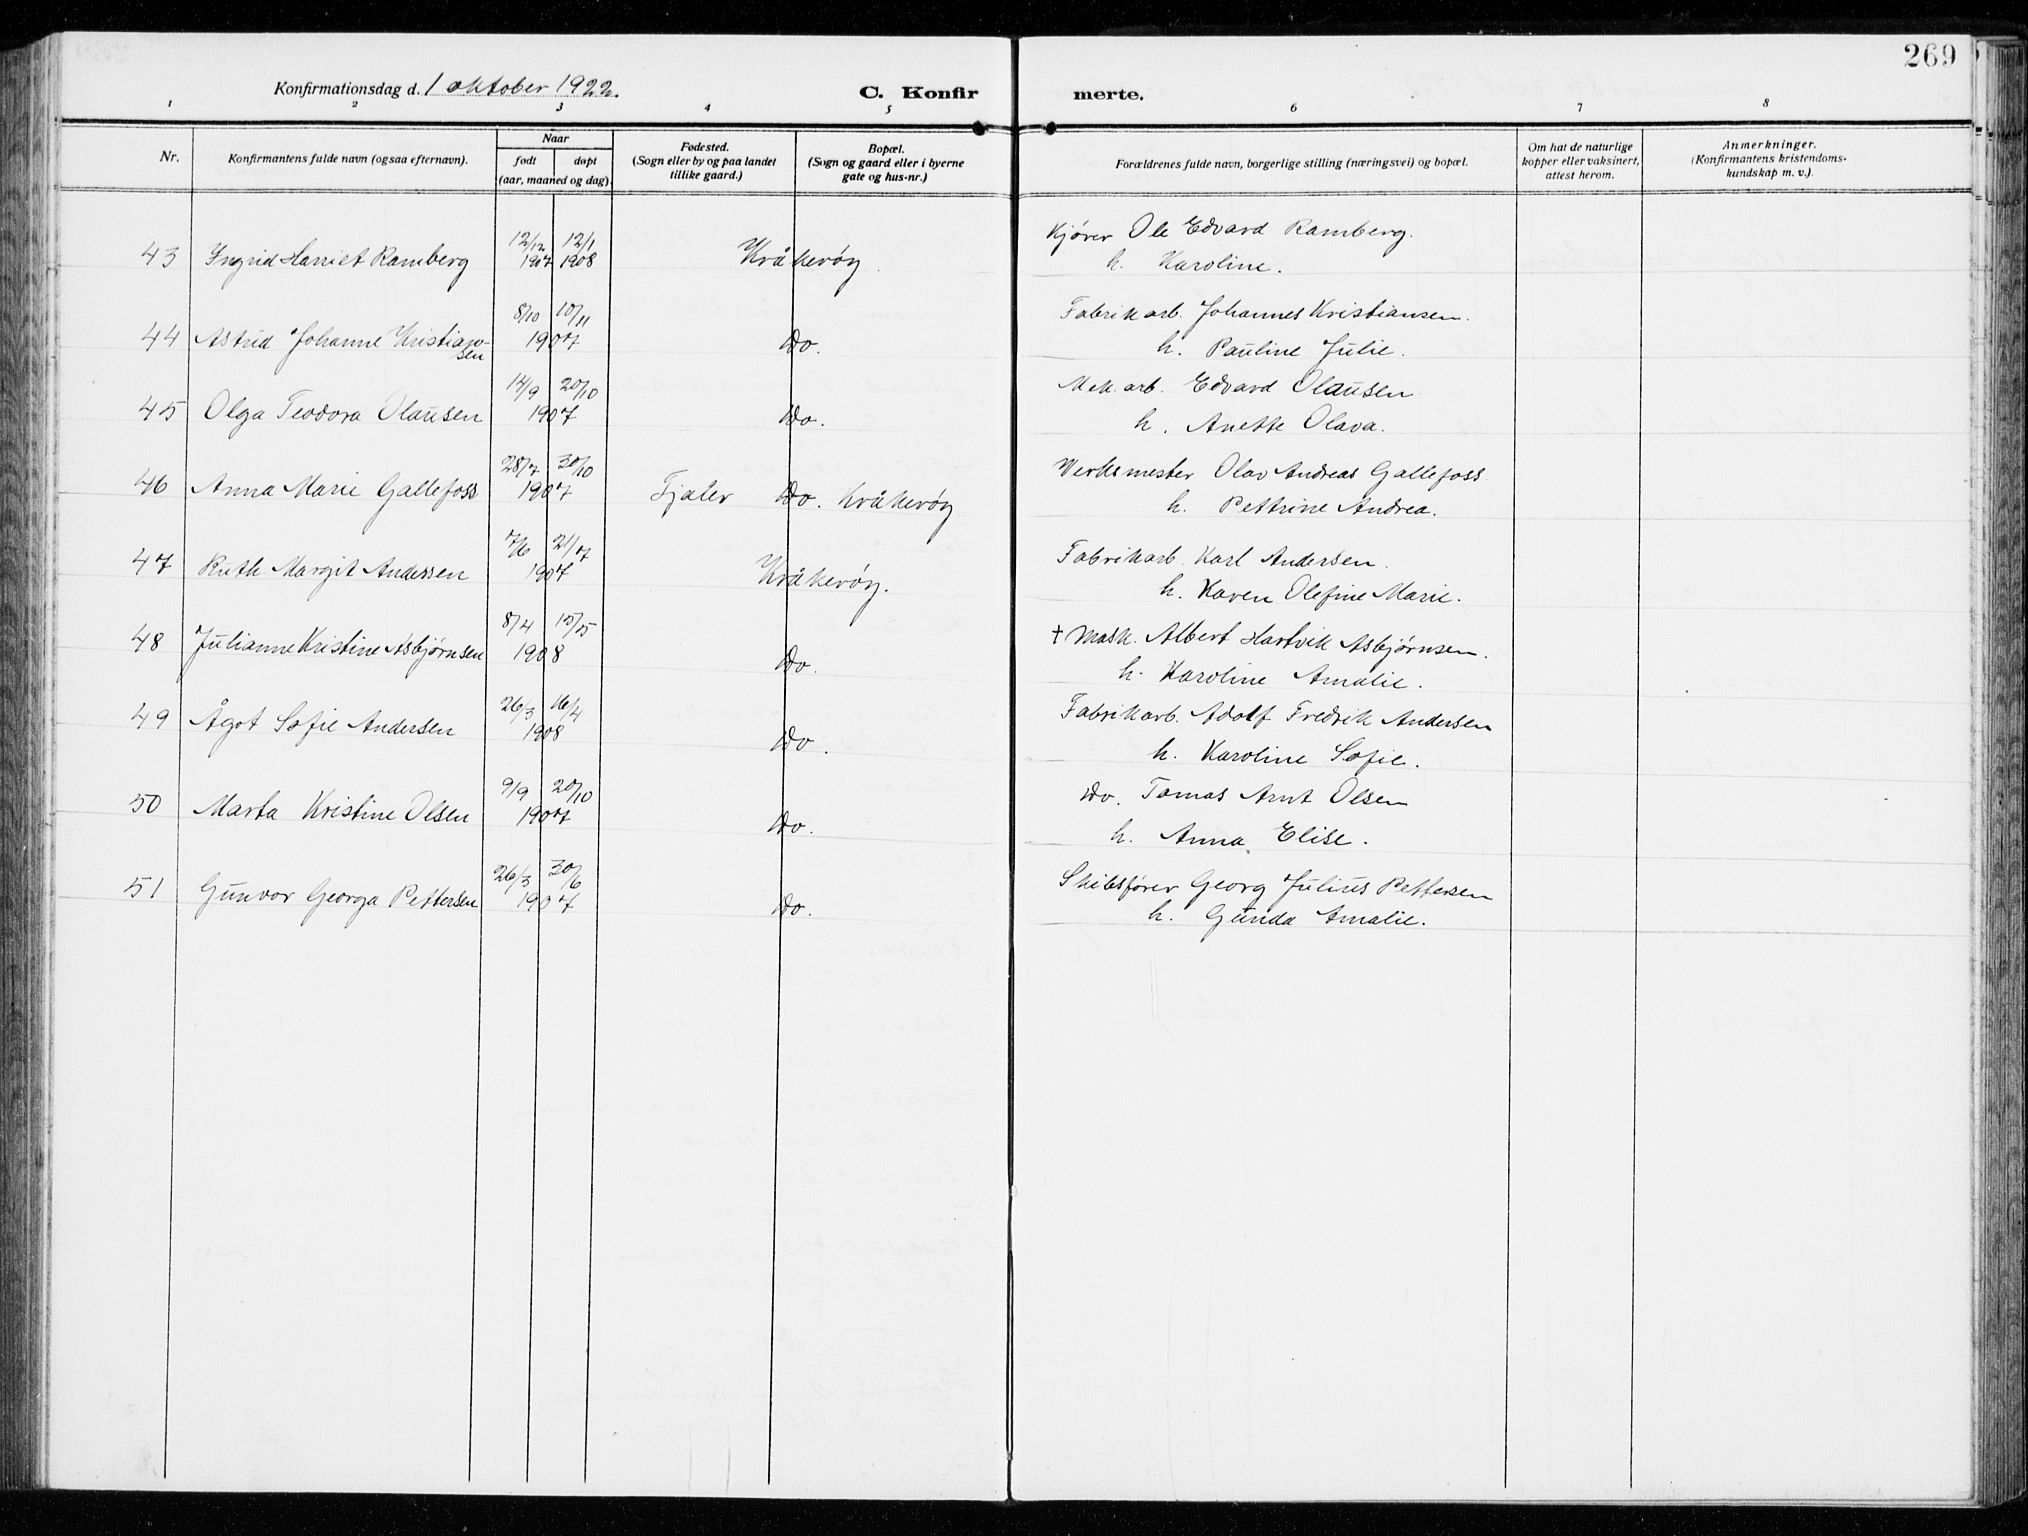 269
Konfirmationsdag d. 1 oktober 1922.
C. Konfirmerte.
1 2 3 4 5 6 7 8
Nr.
Konfirmantens fulde navn (ogsaa efternavn).
Naar
født
døpt
(aar, maaned og dag).
Fødested.
(Sogn eller by og paa landet
tillike gaard.)
Bopæl.
(Sogn og gaard eller i byerne
gate og hus-nr.)
Forældrenes fulde navn, borgerlige stilling (næringsvei) og bopæl.
Om hat de naturlige
kopper eller vaksinert,
attest herom.
Anmerkninger.
(Konfirmantens kristendoms-
kundskap m. v.).
43 Ingrid Harriet Ramberg 12/12 1907 12/1 1908 Kråkerøy Kjører Ole Edvard Ramberg.
h. Karoline.
44 Astrid Johanne Kristian-
sen 8/10 10/11 1907 Do. Fabrikarb. Johannes Kristiansen.
h. Pauline Julie.
45 Olga Teodora Olausen 14/9 20/10 1907 Do. Mek. arb. Edvard Olausen
h. Anette Olava.
46 Anna Marie Gallefoss 28/7 30/10 1907 Fjaler Do. Kråkerøy Verksmester Olav Andreas Gallefoss
h. Pettrine Andrea.
47 Ruth Margit Andersen 7/6 21/7 1907 Kråkerøy. Fabrikarb. Karl Andersen.
h. Karen Olefine Marie.
48 Julianne Kristine Asbjørnsen 8/4 15/5 1908 Do. † Mask. Albert Hartvik Asbjørnsen.
h. Karoline Amalie.
49 Ågot Sofie Andersen 26/3 16/4 1908 Do. Fabrikarb. Adolf Fredrik Andersen
h. Karoline Sofie.
50 Marta Kristine Olsen 9/9 20/10 1907 Do. Do. Tomas Arnt Olsen
h. Anna Elise.
51 Gunvor Georga Pettersen 26/3 30/6 1907 Do. Skibsfører Georg Julius Pettersen
h. Gunda Amalie.